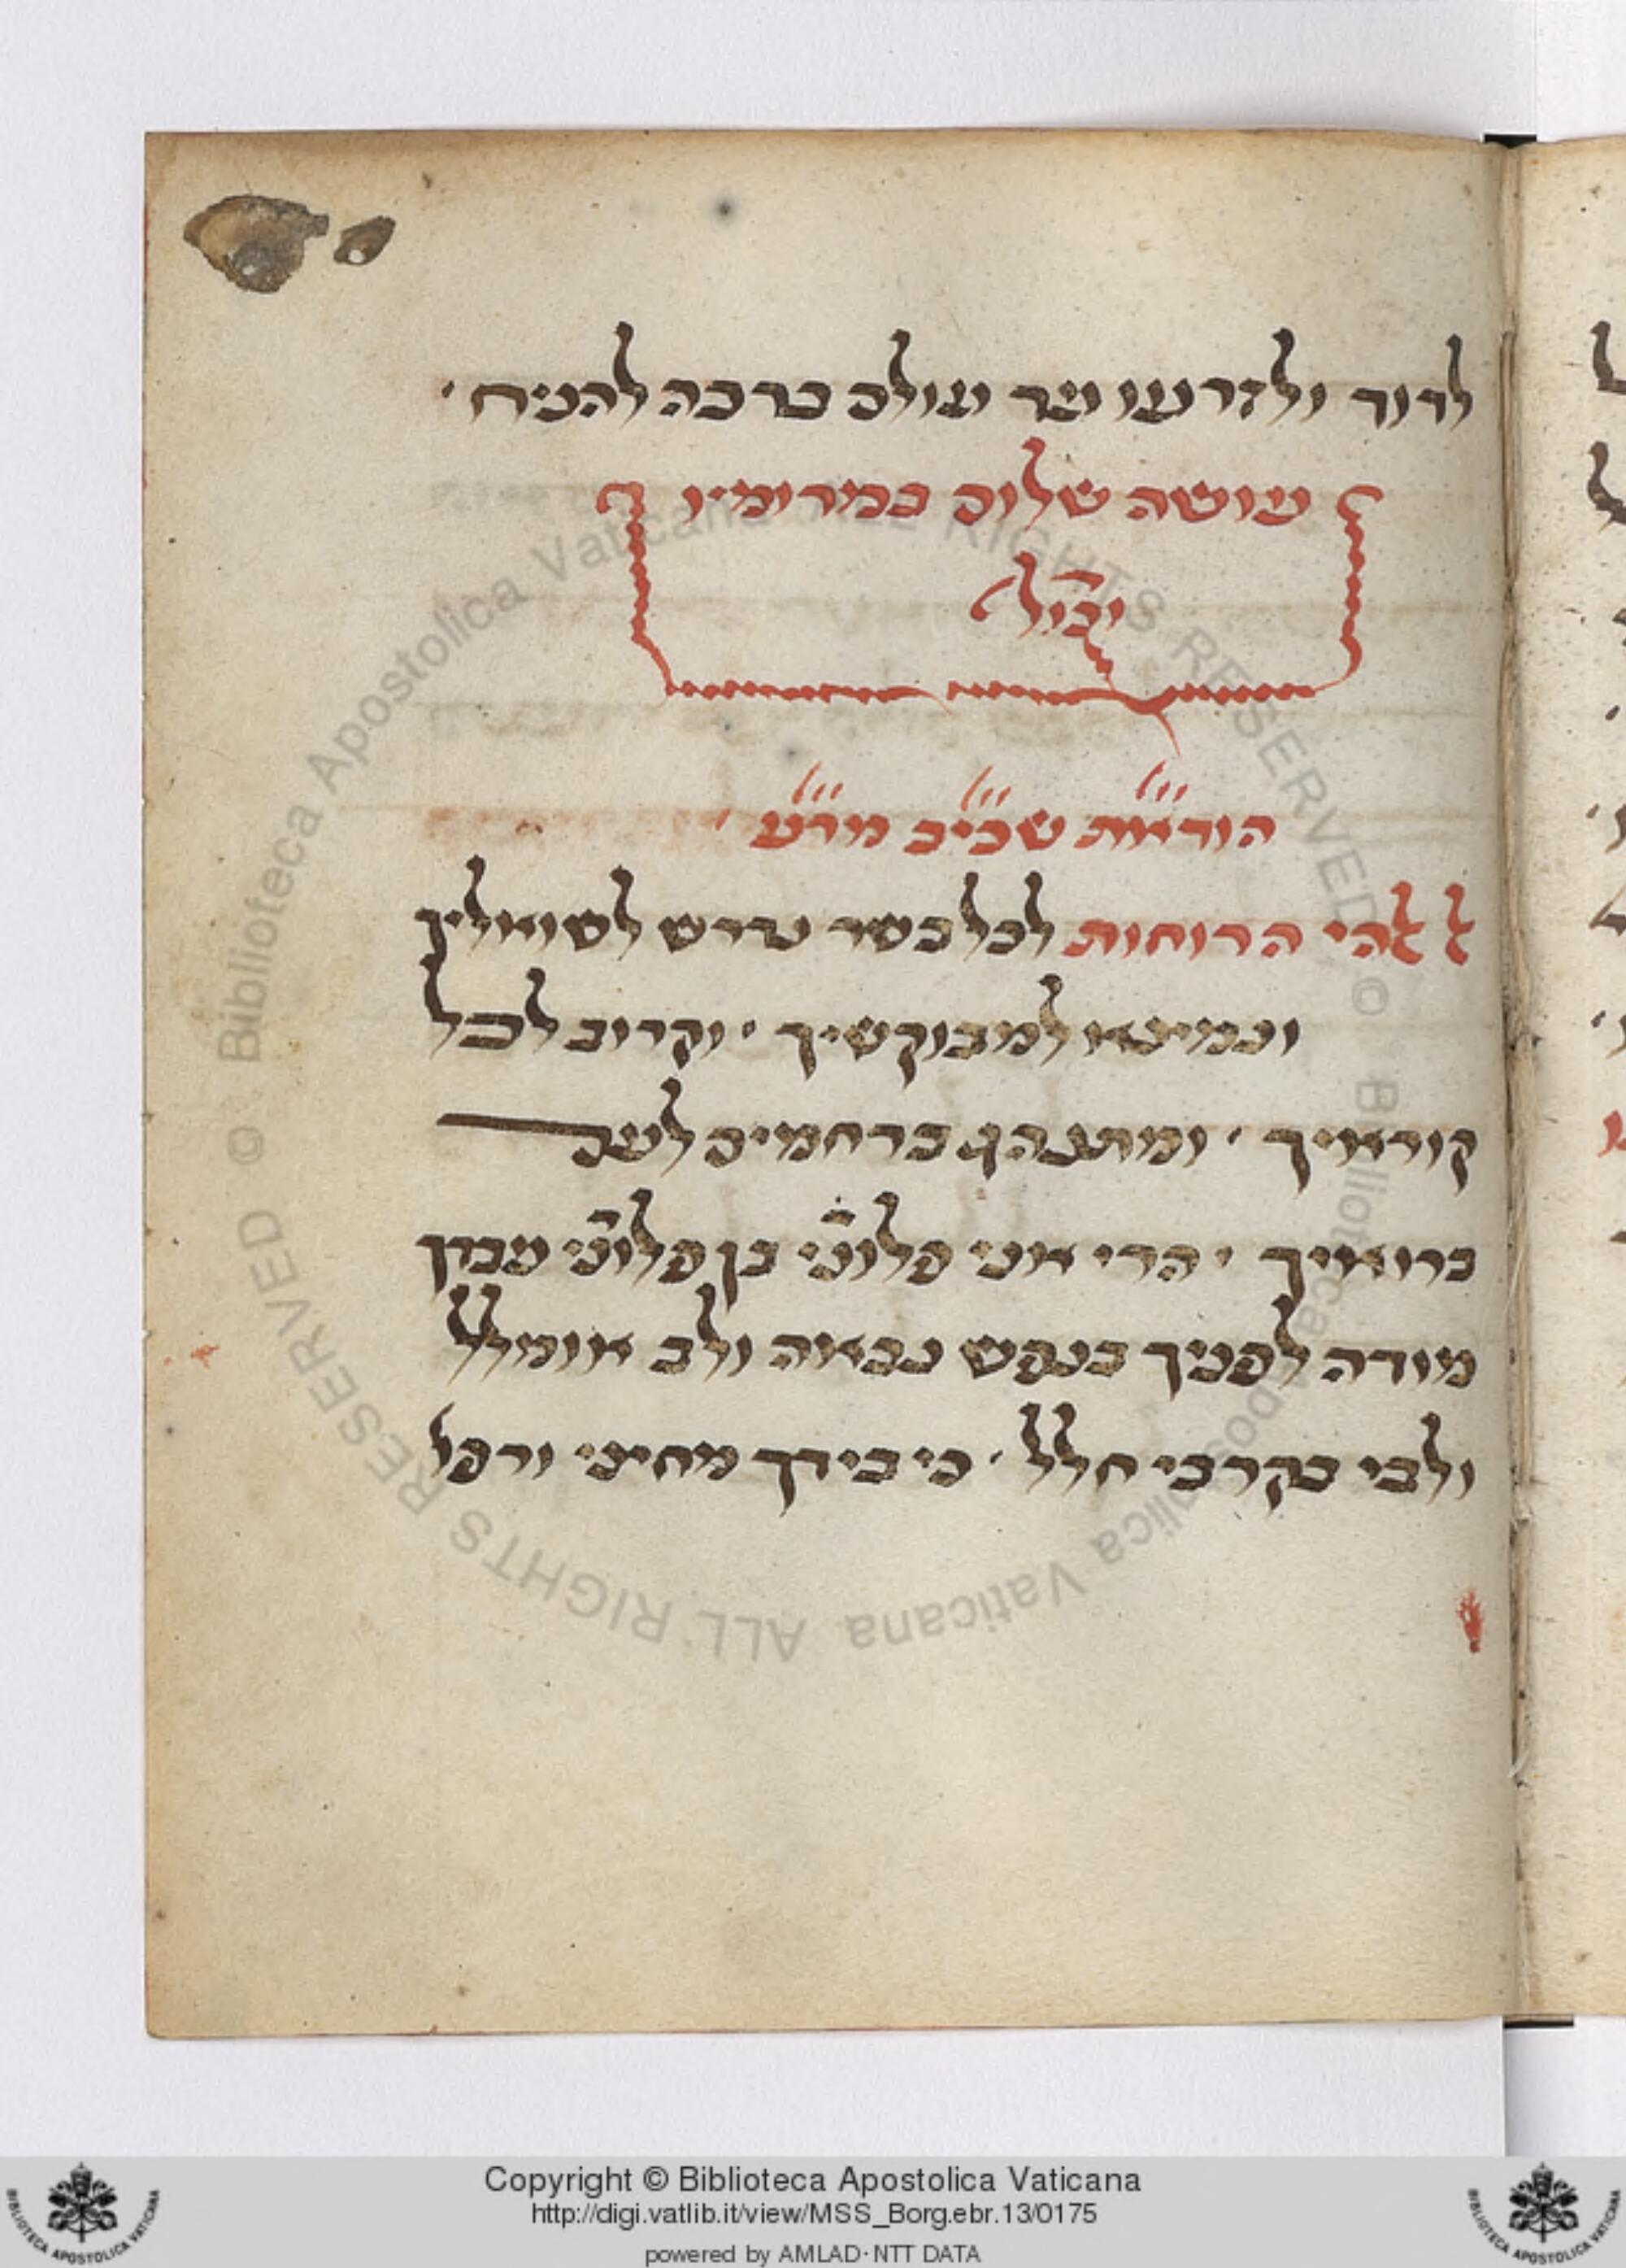 לדוד ולזרעו ועד עולם ברכה להניח׳
עושה שלום במרומיו
יכיל
הודאות שכיב מרע׳
אלהי הרוחות לכל בשר דורש לשואליך
ונמצא למבוקשיך׳ וקרוב לכל
קוראיך׳ ומתנהג ברחמים לעם
ברואיך׳ הרי אני פלוני בן פלוני מברך
מודה לפניך בנפש נכאה ולב אומלל
ולבי בקרבי חלל׳ כי בידך מחיתי ורפו
Copyright © Biblioteca Apostolica Vaticana
http://digi.vatlib.it/view/MSS_Borg.ebr.13/0175
powered by AMLAD·NTT DATA